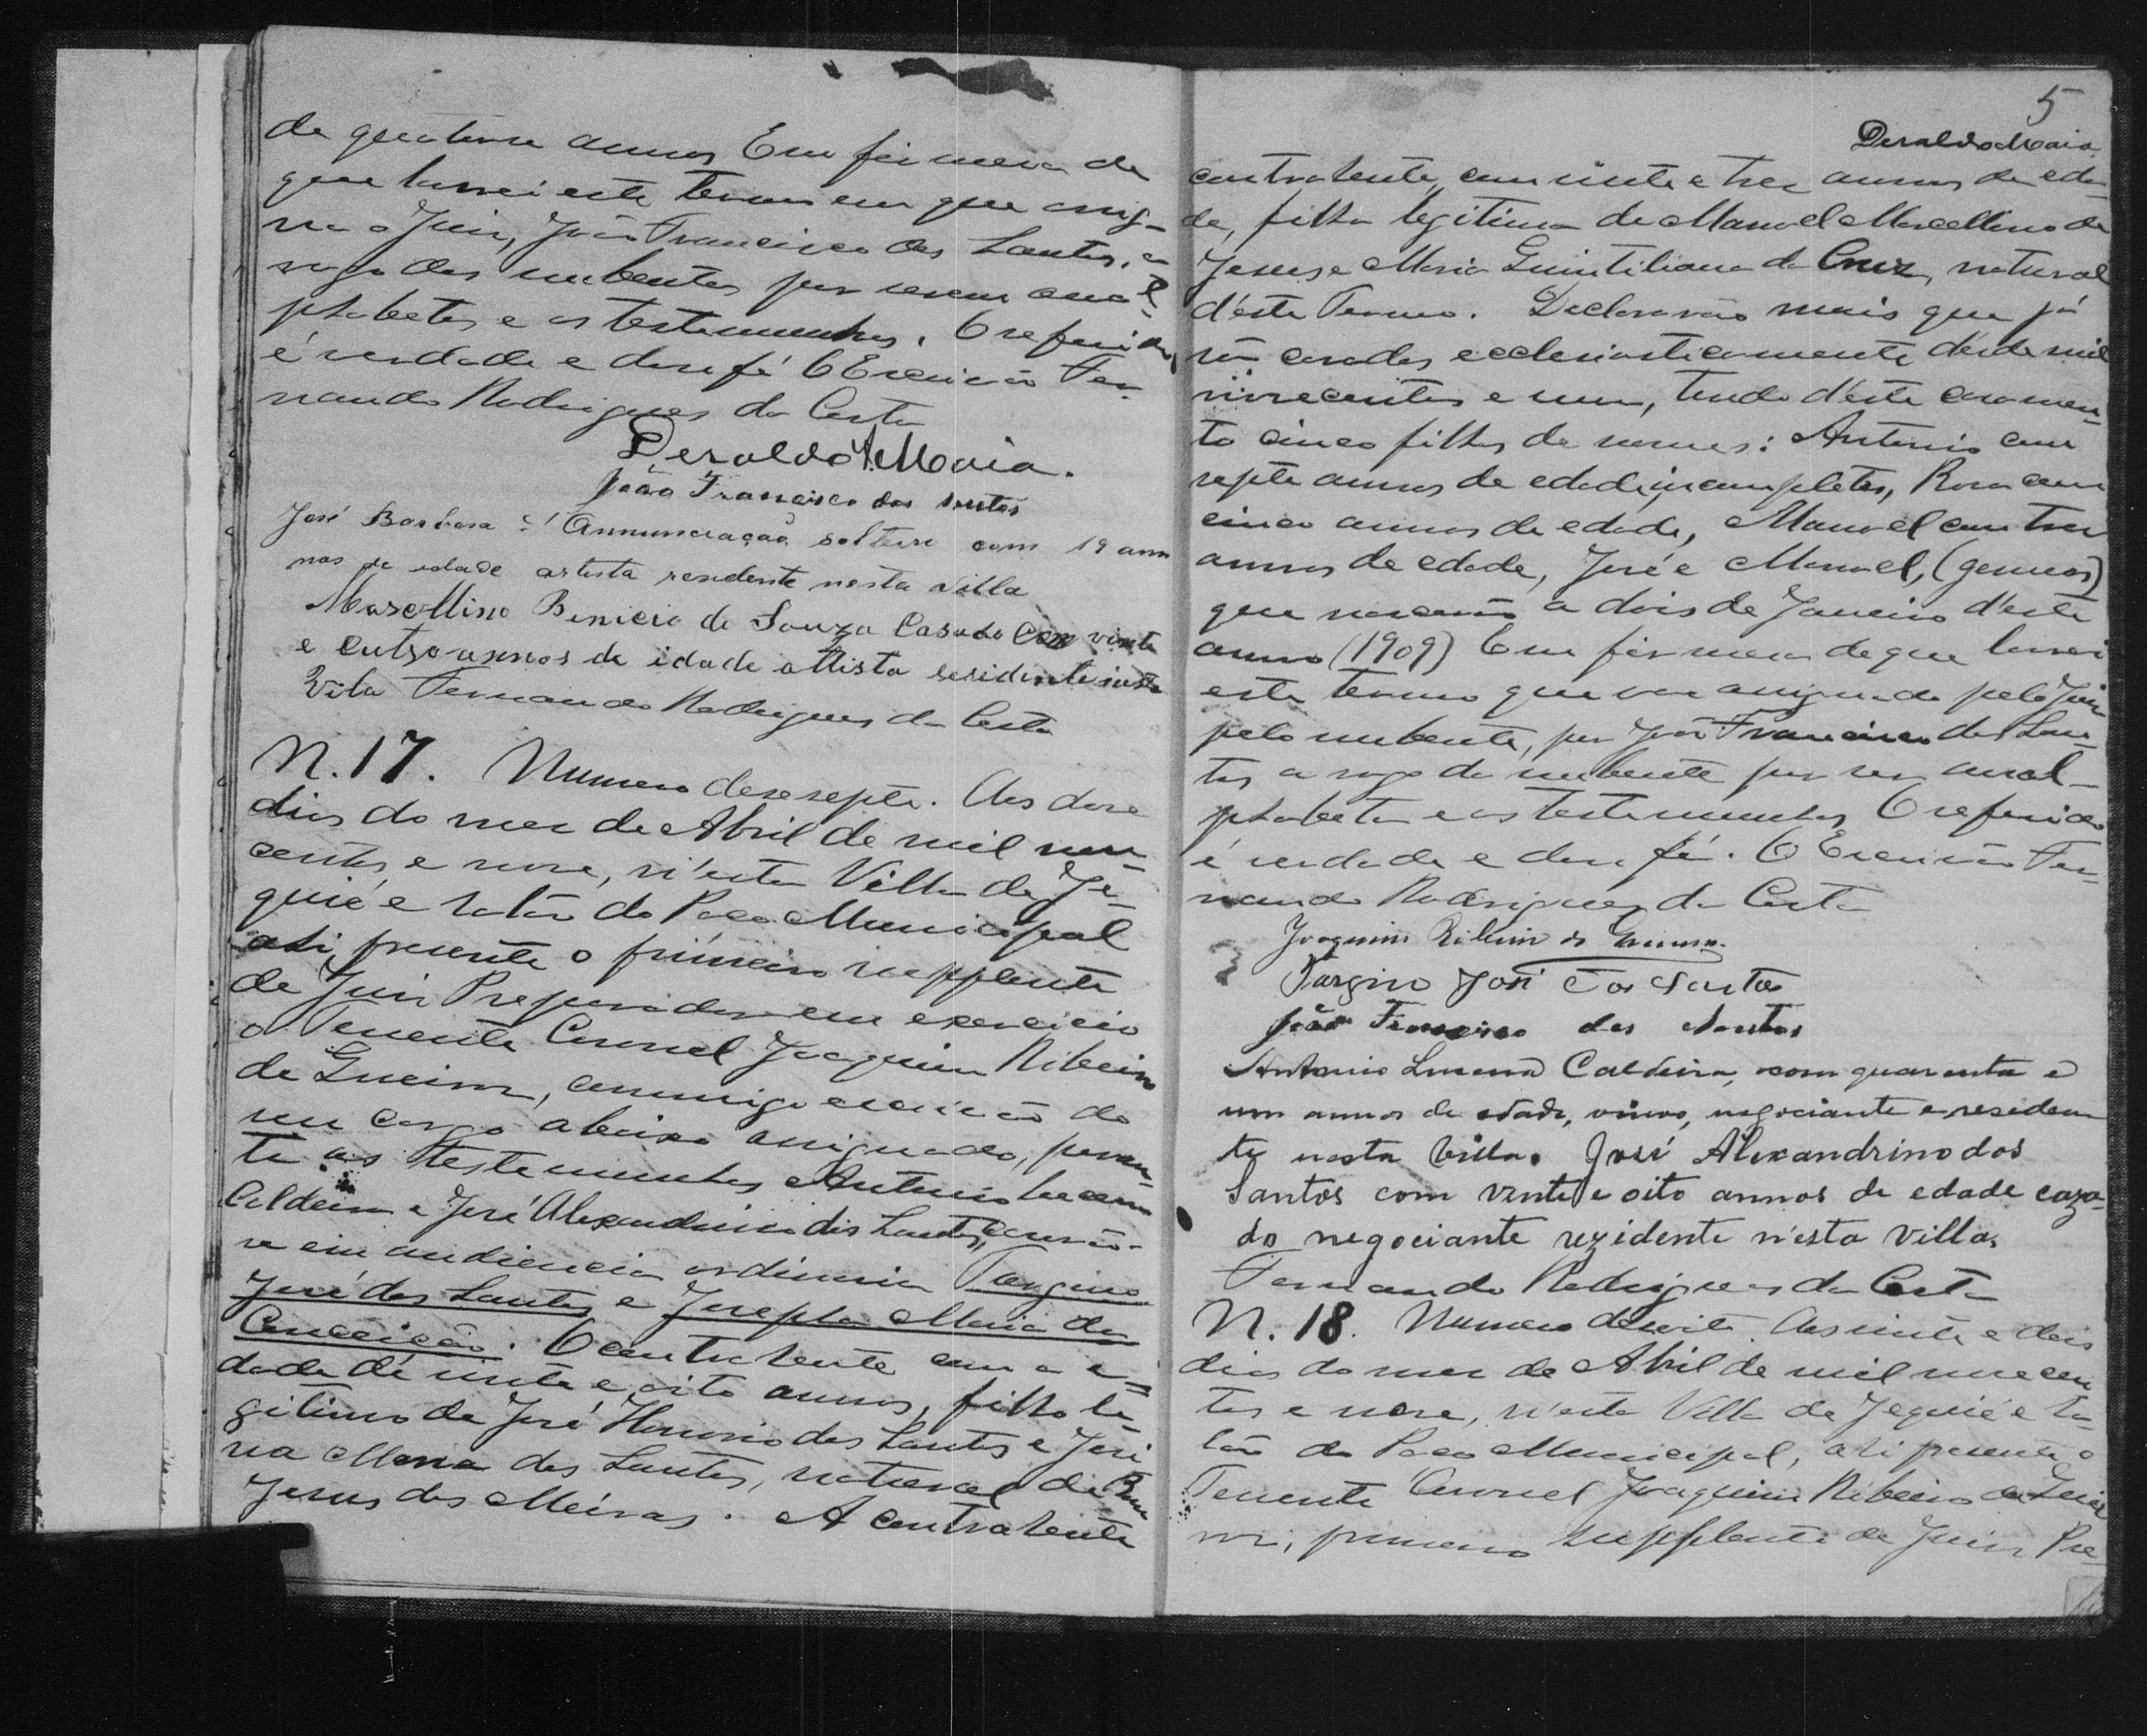 de quatorze annos Em firmeza de
que lavrei este termo em que assig-
na o Juiz, João Francisco dos Santos, a
rogo dos nubentes por serem anal-
phabetos e as testemunhas. O referido
é verdade e dou fé O Escrivão Fer-
nando Rodrigues da Costa
Deraldo A. Maia.
João Francisco dos Santos
José Barbosa d' Annunciação solteiro com 19 ann
nos de edade artista rendente nesta Villa
Marcellino Benicio de Souza Casado Com vinte
e outro annos de idade attista residente nesta
Vila Fernando Rodrigues da Costa
N. 17. Numero desesepte. Aos doze
dias do mez de Abril de mil nove-
centos e nove, n'esta Villa de Je-
quié e salão do Paço Municipal
ahi presente o primeiro supplente
de Juiz Preparador em exercicio
o Tenente Coronel Joaquim Ribeiro
de commigo escrivão do
seu cargo abaixo assignado, peran-
te as testemunhas Antonio Lucena
Caldeira e José Alexandrino dos Santos, casarão-
se em audiencia ordinaria Targino
José dos Santos e Josepha Maria da
Conceição. O contrahente com a e-
dade de vinte e oito annos, filho le-
gitimo de José Honorio dos Santos e Jesui
na Maria dos Santos, natural de Bom
Jesus dos Meiras. A contrahente
5
Deraldo Maia
contrahente, com vinte e tres annos de eda-
de, filha legitima de Manoel Marcellino de
Jesus e Maria Quintiliana da Cruz, natural
d'este Termo. Declararão mais que já
são casados ecclesiasticamente desde mil
novecentos e um, tendo d'este casamen-
to cinco filhos de nomes: Antonio com
septe annos de edade, incompletos, Rosa com
cinco annos de edade, Manoel com tres
annos de edade, José e Manoel, (gemeos)
que nasceram a dois de Janeiro d'este
anno (1909) Em firmeza de que lavrei
este termo que vae assignado pelo Juiz
pelo nubente, por João Francisco dos San-
tos a rogo da nubente por ser anal-
phabeta e as testemunhas O referido
é verdade e dou fé. O Escrivão Fer-
nando Rodrigues da Costa
Joaquim Ribeiro de
Targino José dos Santos
João Francisco dos Santos
Antonio Lucena Caldeira, com quarenta e
um annos de edade, viuvo, negociante e residen
te nesta Villa. José Alexandrino dos
Santos com vinte e oito annos de edade caza-
do negociante rezidente n'esta Villa.
Fernando Rodrigues da Costa
N. 18. Numero desoito. Aos vinte e dois
dias do mez de Abril de mil novecen
tos e nove, n'esta Villa de Jequié e sa-
lão do Paço Municipal, ahi presente o
Tenente Coronel Joaquim Ribeiro de
primeiro supplente de Juiz Pre-